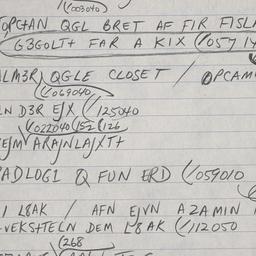 (003040)
TOPCTAN QGL BRET AF FIR FISLA
G3GOLT+ FAR A KIX (/057 14
ALM3R) QGLE CLOSET / OPCAM
(/069040)
LN D3R EJX (/125040
(/022040 (/52 (/126
EJM ARAJNLAJXT+
PADLOGI Q FUN ERD (/059010
I L8AK / AFN EJVN AZAMIN
-VEKSHTELN DEM L8AK (/112050
(268